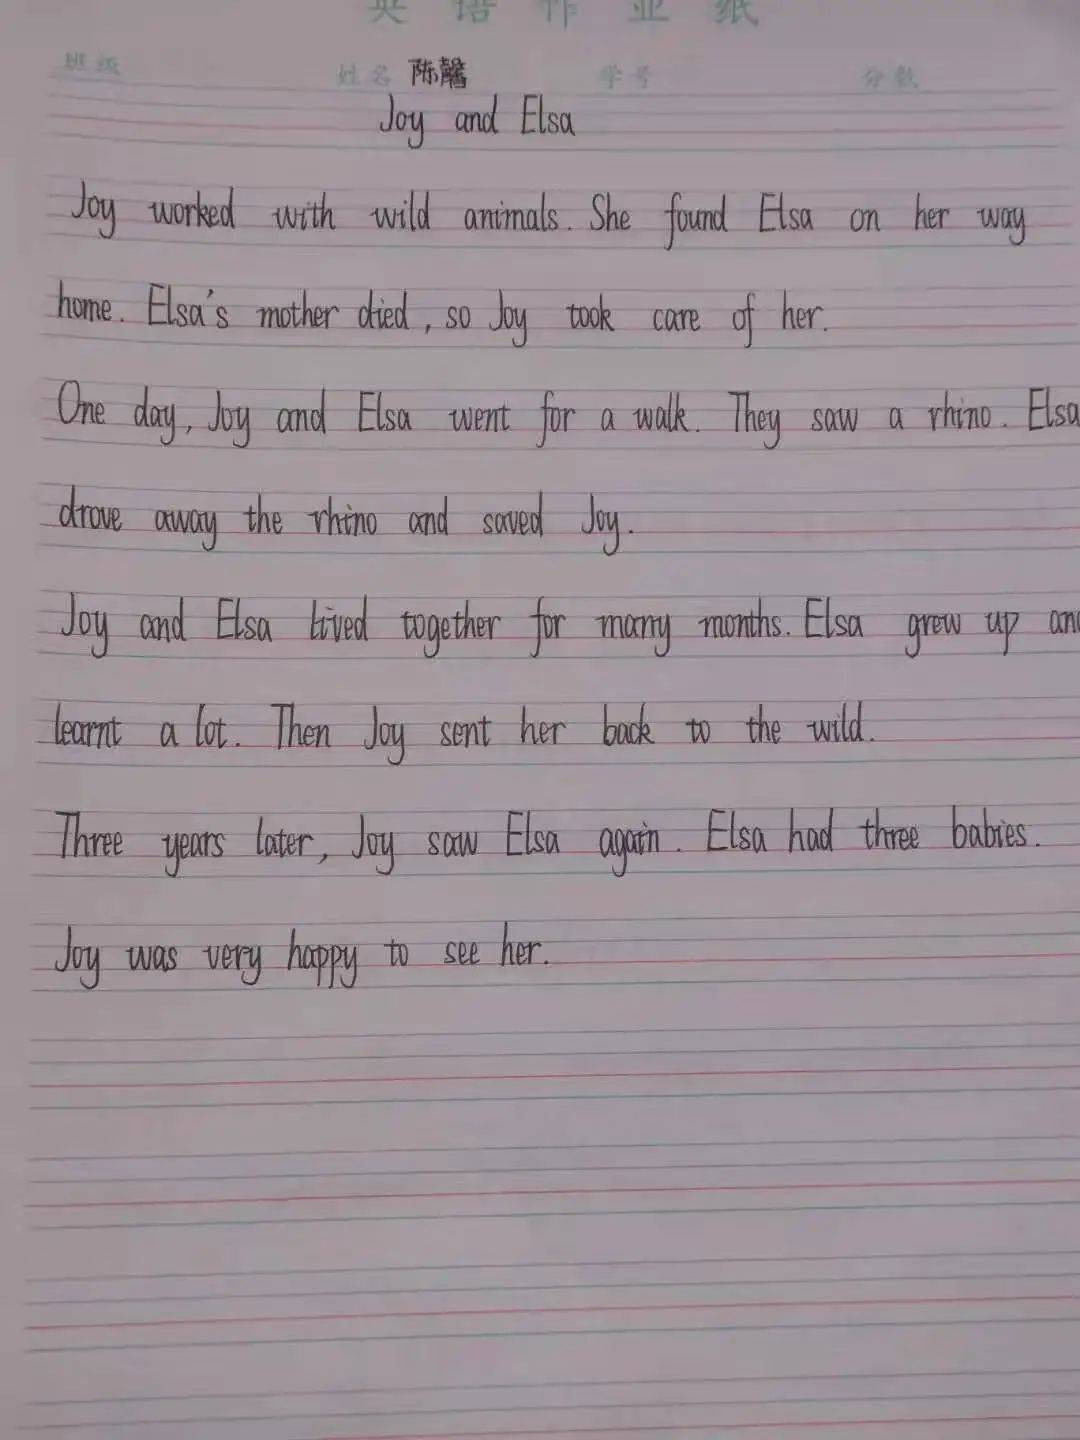 英语作业纸
班级 姓名 陈馨 学号 分数
Joy and Elsa
Joy worked with wild animals. She found Elsa on her way
home. Elsa's mother died, so Joy took care of her.
One day, Joy and Elsa went for a walk. They saw a rhino. Elsa
drove away the rhino and saved Joy.
Joy and Elsa lived together for many months. Elsa grew up an
learnt a lot. Then Joy sent her back to the wild.
Three years later, Joy saw Elsa again. Elsa had three babies.
Joy was very happy to see her.